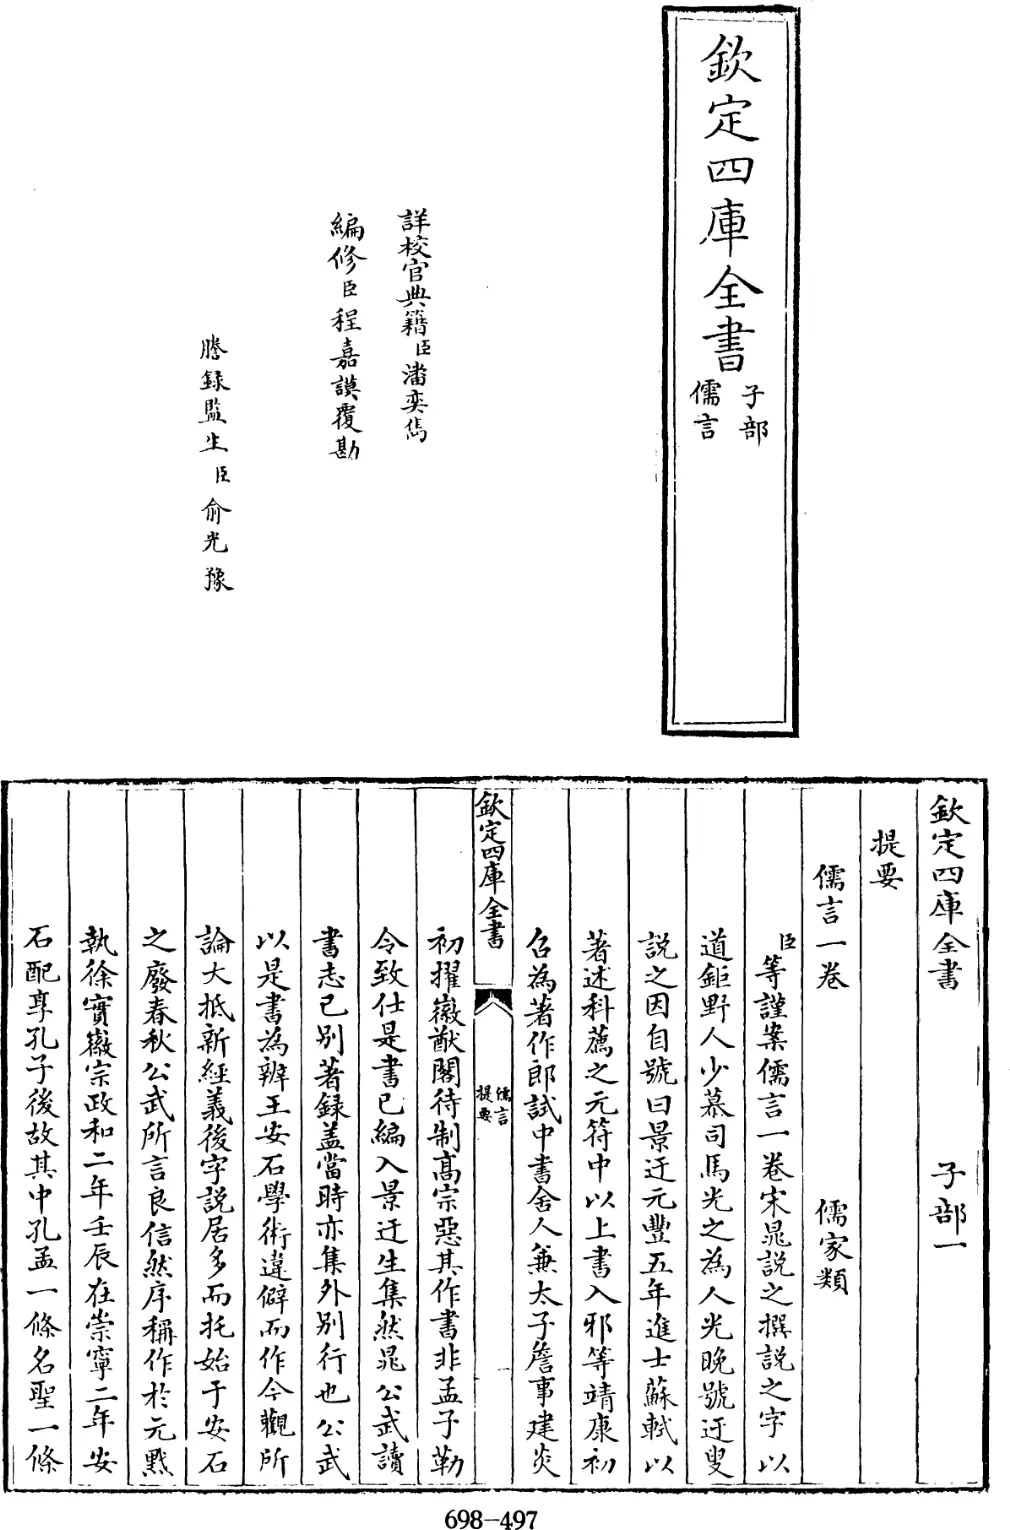 欽定四庫全書
子部
儒言
詳校官典籍臣潘奕雋
編修臣程嘉謨覆勘
謄錄監生臣俞光豫
欽定四庫全書 子部一
提要
儒言一卷 儒家類
臣等謹案儒言一卷宋晁説之撰説之字以
道鉅野人少慕司馬光之為人光晚號迂叟
説之因自號曰景迂元豐五年進士蘇軾以
著述科薦之元符中以上書入邪等靖康初
召為著作郎試中書舍人兼太子詹事建炎
欽定四庫全書
儒言
提要
一
初擢徽猷閣待制高宗惡其作書非孟子勒
令致仕是書已編入景迂生集然晁公武讀
書志已別著録盖當時亦集外別行也公武
以是書為辨王安石學術違僻而作今觀所
論大抵新經義後字説居多而托始于安石
之廢春秋公武所言良信然序稱作於元黓
執徐實徽宗政和二年壬辰在崇寧二年安
石配享孔子後故其中孔孟一條名聖一條
698-497